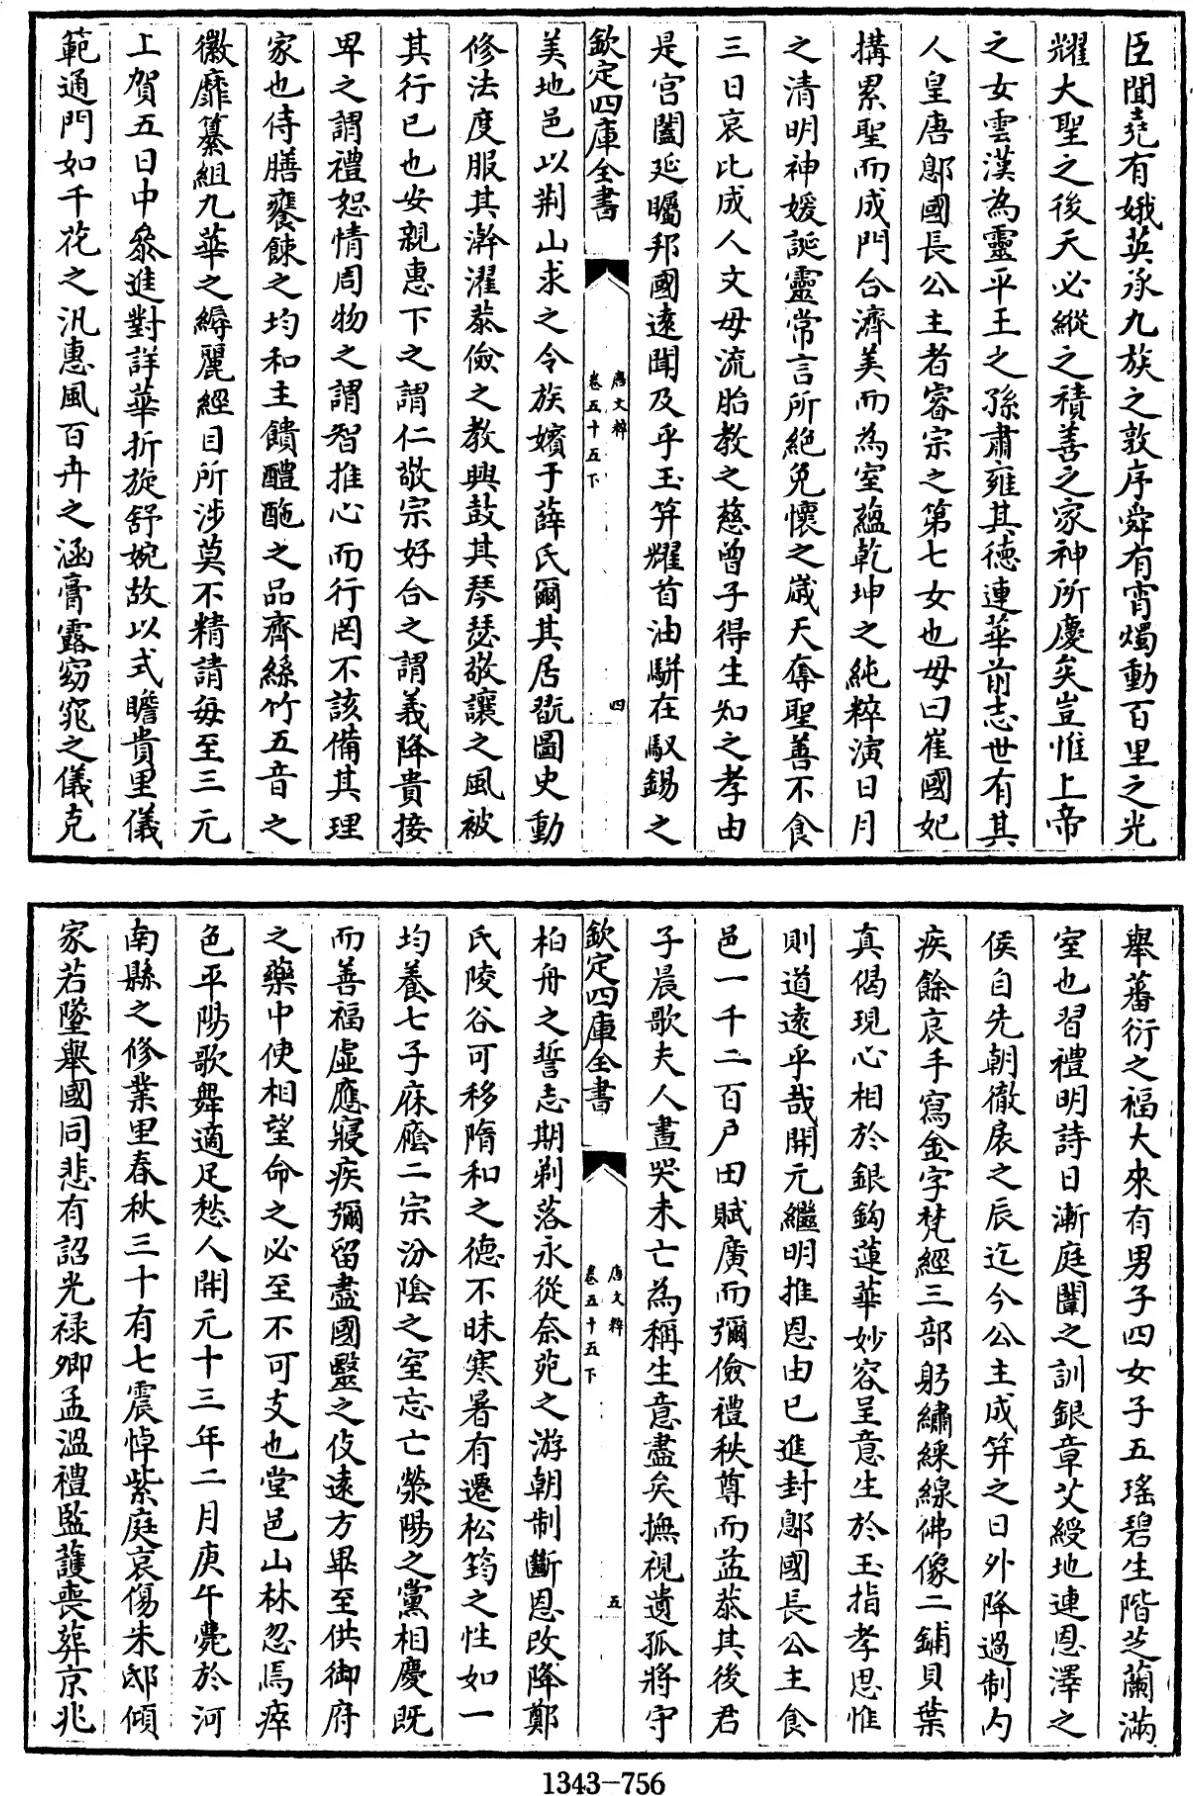 臣聞堯有娥英承九族之敦序舜有宵燭動百里之光
耀大聖之後天必縱之積善之家神所慶矣豈惟上帝
之女雲漢為靈平王之孫肅雍其德連華前志世有其
人皇唐鄎國長公主者睿宗之第七女也母曰崔國妃
搆累聖而成門合濟美而為室蘊乾坤之純粹演日月
之清明神媛誕靈常言所絶免懷之嵗天奪聖善不食
三日哀比成人文母流胎教之慈曾子得生知之孝由
是宫闔延矚邦國逺聞及乎玉笄耀首油駢在馭錫之
欽定四庫全書
唐文粹
卷五十五下
四
美地邑以荆山求之令族嬪于薛氏爾其居翫圖史動
修法度服其澣濯恭儉之教興鼓其琴瑟敬讓之風被
其行已也安親惠下之謂仁敬宗好合之謂義降貴接
卑之謂禮恕情周物之謂智推心而行罔不該備其理
家也侍膳饔餗之均和主饋醴酏之品齊絲竹五音之
徽靡纂組九華之縟麗經目所涉莫不精請每至三元
上賀五日中叅進對詳華折旋舒婉故以式瞻貴里儀
範通門如千花之汎惠風百卉之涵膏露窈窕之儀克
舉蕃衍之福大來有男子四女子五瑤碧生階芝蘭滿
室也習禮明詩日漸庭闈之訓銀章艾綬地連恩澤之
侯自先朝徹扆之辰迄今公主成笄之日外降過制内
疾餘哀手寫金字梵經三部躬繡綵線佛像二鋪貝葉
真偈現心相於銀鈎蓮華妙容呈意生於玉指孝思惟
則道逺乎哉開元繼明推恩由已進封鄎國長公主食
邑一千二百户田賦廣而彌儉禮秩尊而益恭其後君
子晨歌夫人晝哭未亡為稱生意盡矣撫視遺孤將守
欽定四庫全書
唐文粹
卷五十五下
五
柏舟之誓志期剃落永從奈苑之游朝制斷恩改降鄭
氏陵谷可移隋和之德不昧寒暑有遷松筠之性如一
均養七子庥廕二宗汾隂之室忘亡滎陽之黨相慶既
而善福虚應寢疾彌留盡國毉之伎逺方畢至供御府
之藥中使相望命之必至不可支也堂邑山林忽焉瘁
色平陽歌舞適足愁人開元十三年二月庚午薨於河
南縣之修業里春秋三十有七震悼紫庭哀傷朱邸傾
家若墜舉國同悲有詔光禄卿孟溫禮監䕶喪葬京兆
1343-756